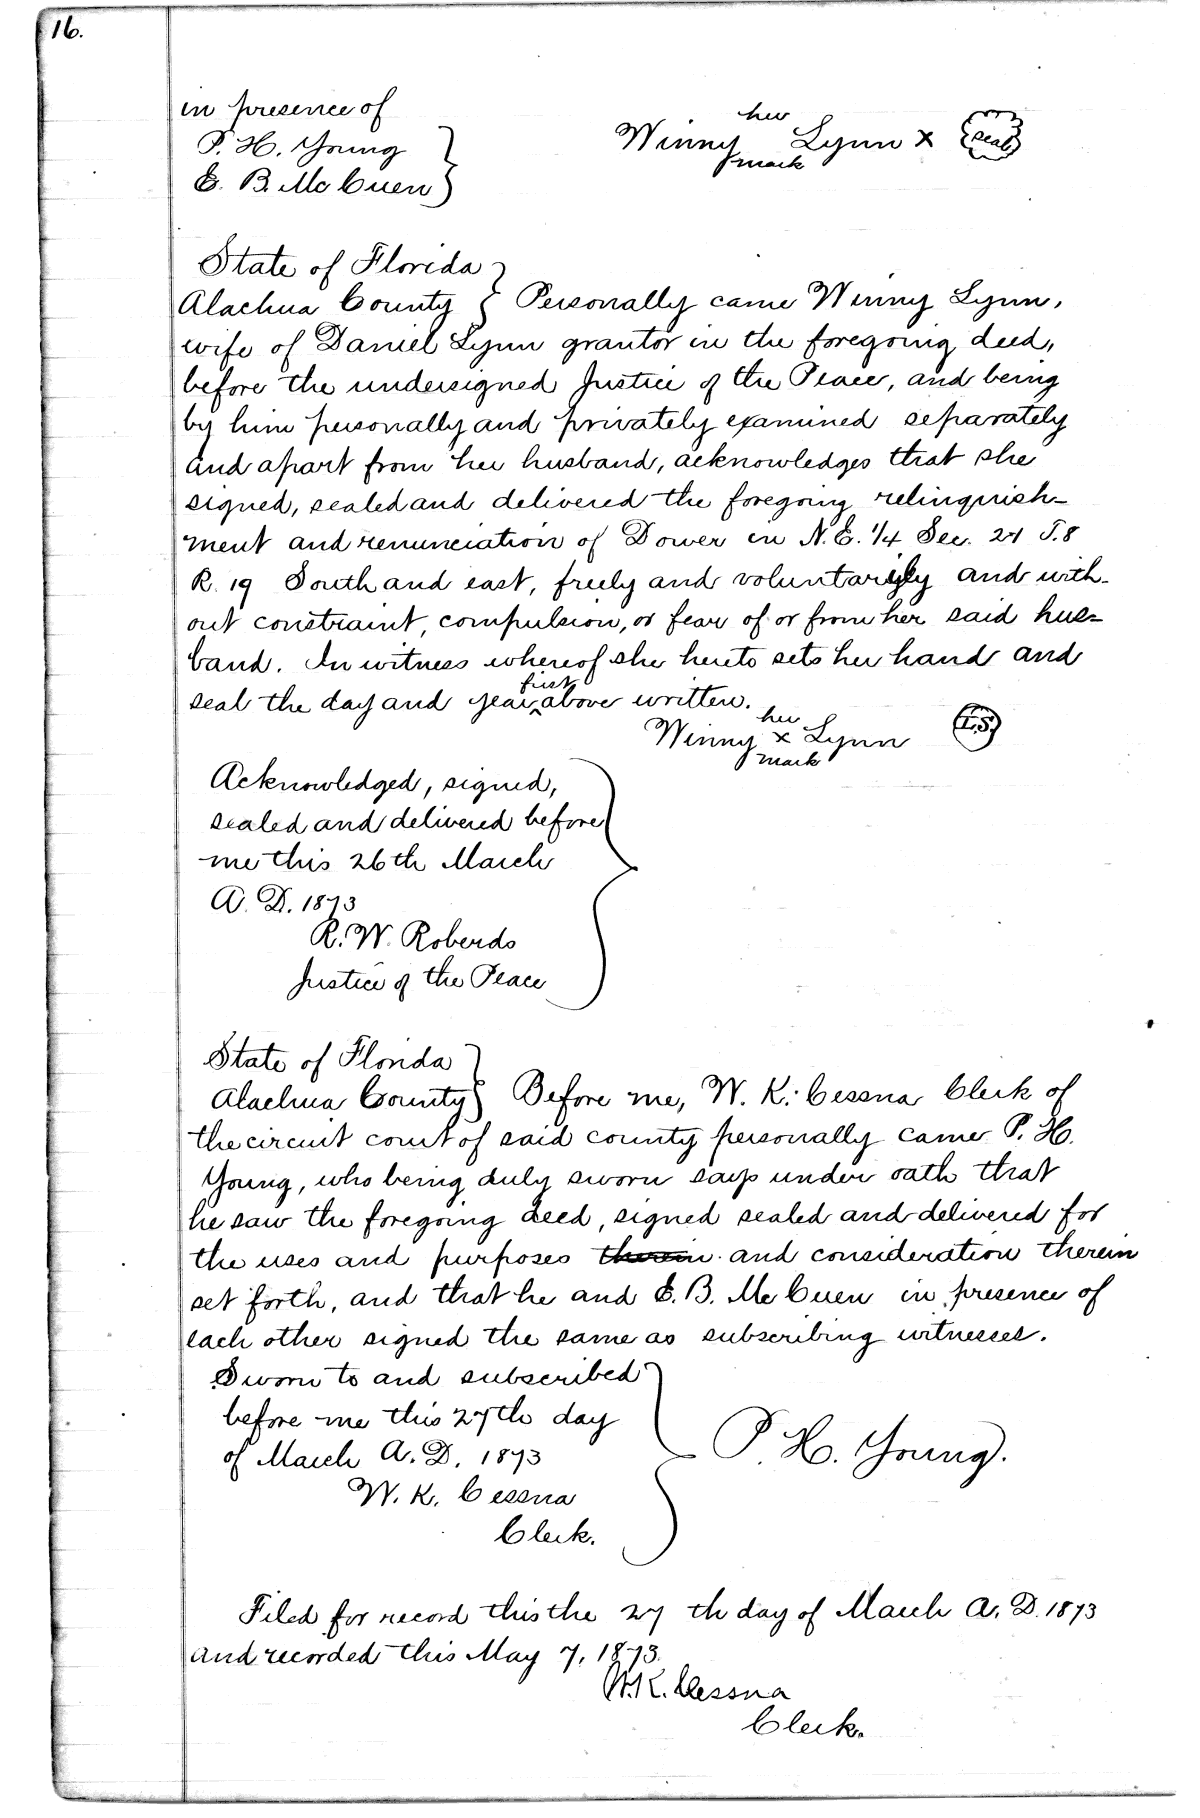 16.
in presence of
P. H. Young
E. B. McCuen
her
Winny Lynn x seal
mark
State of Florida
Alachua County } Personally came Winny Lynn,
wife of Daniel Lynn grantor in the foregoing deed,
before the undersigned Justice of the Peace, and being
by him personally and privately examined separately
and apart from her husband, acknowledges that she
signed, sealed and delivered the foregoing relinquish-
ment and renunciation of Dower in N.E. 1/4 Sec. 21 T.8
R. 19 South and east, freely and voluntarily and with-
out constraint, compulsion, or fear of or from her said hus-
band. In witness whereof she hereto sets her hand and
seal the day and year first above written.
her
Winny x Lynn L.S.
mark
Acknowledged, signed,
sealed and delivered before
me this 26th March
A. D. 1873
R. W. Roberds
Justice of the Peace
State of Florida
Alachua County } Before me, W. K. Cessna Clerk of
the circuit court of said county personally came P. H.
Young, who being duly sworn says under oath that
he saw the foregoing deed, signed sealed and delivered for
the uses and purposes therein and consideration therein
set forth, and that he and E. B. McCuen in presence of
each other signed the same as subscribing witnesses.
Sworn to and subscribed
before me this 27th day
of March A. D. 1873
P. H. Young.
W. K. Cessna
Clerk.
Filed for record this the 27 th day of March A. D. 1873
and recorded this May 7, 1873.
W. K. Cessna
Clerk.